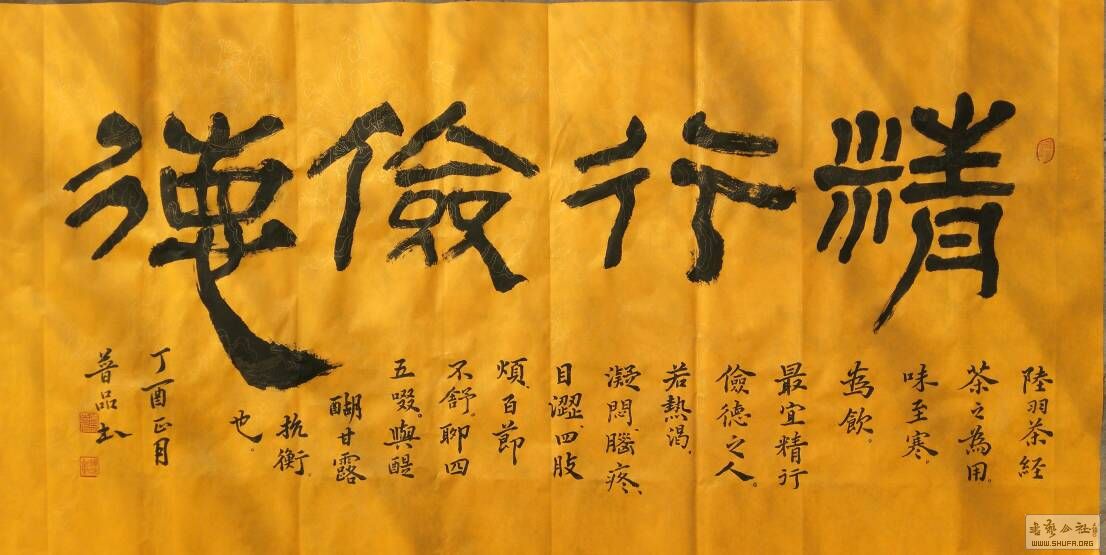 精行儉德
陸羽茶経
茶之為用。
味至寒。
為飲。
最宜精行
儉德之人。
若熱渴、
凝悶、腦疼、
目澀、四肢
煩、百節
不舒。聊四
五啜。與醍
醐甘露
抗衡。
也。
丁酉正月
普品书
WWW.SHUFA.ORG